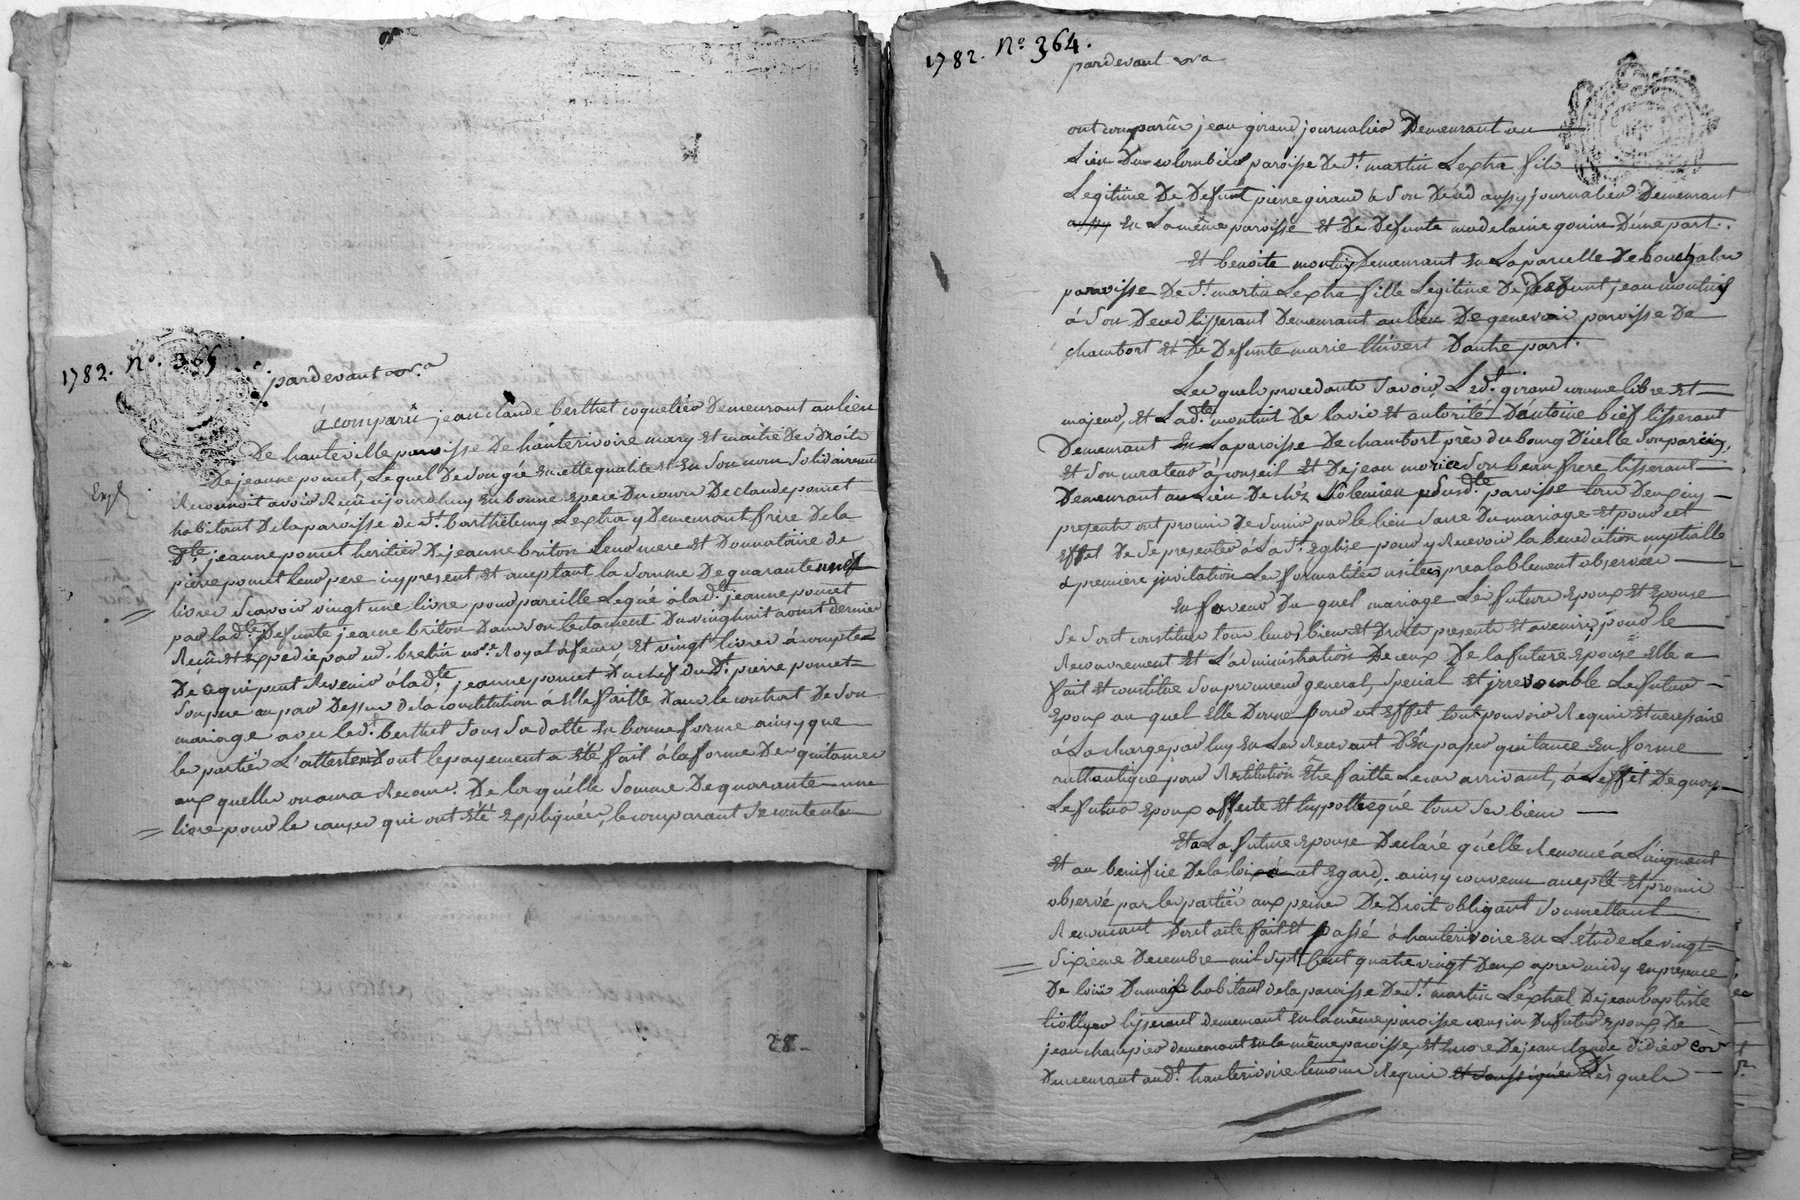 1782. N.º 365
pardevant
à comparû jean claude berthet coquetier Demeurant au lieu
De hauteville paroisse De hauterivoire mary et maitre Des Droits
De jeanne pomet, Lequel De son gré en cette qualité et en son nom solidairement
Reconnoit avoir Reçû cejourdhuy en bonne espece Du cours De claude pomet
habitant De la paroisse de St. barthelemy Lextra y Demeurant frère De la
Dte. jeanne pomet heritier De jeanne briton Leur mere et Donnataire de
pierre pomet Leur pere icy present et aceptant la somme De quarante
livres scavoir vingt une livre pour pareille Legué à lad. jeanne pomet
par lade. Defunte jeanne briton Dans son testament Du vinghuit avril Dernier
Reçû et expedié par md. bretin nore. Royal à feurs et vingt livres à compte
De ce qui peut Revenir à lade. jeanne pomet Du chef du Dt. pierre pomet
son pere au par Dessus De la constitution à Elle faitte Dans le contrat De son
mariage avec led. berthet sous sa datte en bonne forme ainsy que
les parties L'attestent Dont le payement a été fait à la forme Des quitances
aux quelles on aura Recours. De laquelle somme De quarante une
livre pour les causes qui ont été Expliquées, le comparant se contente
28-
1782. N.º 364.
pardevant
ont comparûs jean girand journalier Demeurant au
Lieu Du colombier paroisse De St. martin Lextra fils
Legitime De Defunt pierre girand à son Deced aussy journalier Demeurant
aussy en La même paroisse et De Defunte madelaine gonin D'une part.
Et benoite montus Demeurant en La parcelle De bouchalas
paroisse De St. martin Lextra fille Legitime De Defunt jean montus
à son Deced tisserant Demeurant au lieu De genevau paroisse De
chambort et De Defunte marie thivert D'autre part.
Les quels procedants savoir Led. girand comme libre et
majeur, et Lade. montus De l'avis et autorité D'antoine bief tisserant
Demeurant en La paroisse De chambort près du bourg D'icelle son parrin,
et son curateur à conseil et De jean morice son beau frere tisserant
Demeurant au Lieu De chéz paroisse tous Deux icy
presents ont promis De s'unir par le lien sacré Du mariage et pour cet
effet De se presenter à La Ste. Eglise pour y Recevoir la benediction nuptialle
à premiere invitation Les formalités usitées prealablement observées
En faveur Du quel mariage Les futurs Epoux et Epouse
se sont constitués tous leurs biens et Droits presents et avenirs, pour le
Recouvrement et L'administration De ceux De la future épouse Elle a
fait et constitué son procureur general, special et irrevocable Le futur
Epoux au quel Elle Donne pour cet Effet tout pouvoir Requis et necessaire
à La charge par luy en Les Recevant D'en passer quitance En forme
authantique pour Restitution être faitte Le cas arrivant, à L'effet De quoy
Le futur Epoux affecte et hippottequé tous ses biens
Et a La future Epouse Declaré qu'elle Renonce à L'augment
et au benifice De la loi à cet egard. ainsy convenu acepté et promis
observé par les parties aux peines De Droit obligeant soumettant
Renoncant Dont acte fait et passé à hauterivoire en L'etude Le vingt
sixieme Decembre mil sept cent quatre vingt Deux apres midy en presence
De loüis Dumas habitant de la paroisse De St. martin Lextra, De jean baptiste
tisserant demeurant en la même paroisse cousin Du futur Epoux De
jean champier demeurant en la même paroisse, et encore De jean claude didier cor
Demeurant aud. hauterivoire temoins Requis et soussignés Lesquels